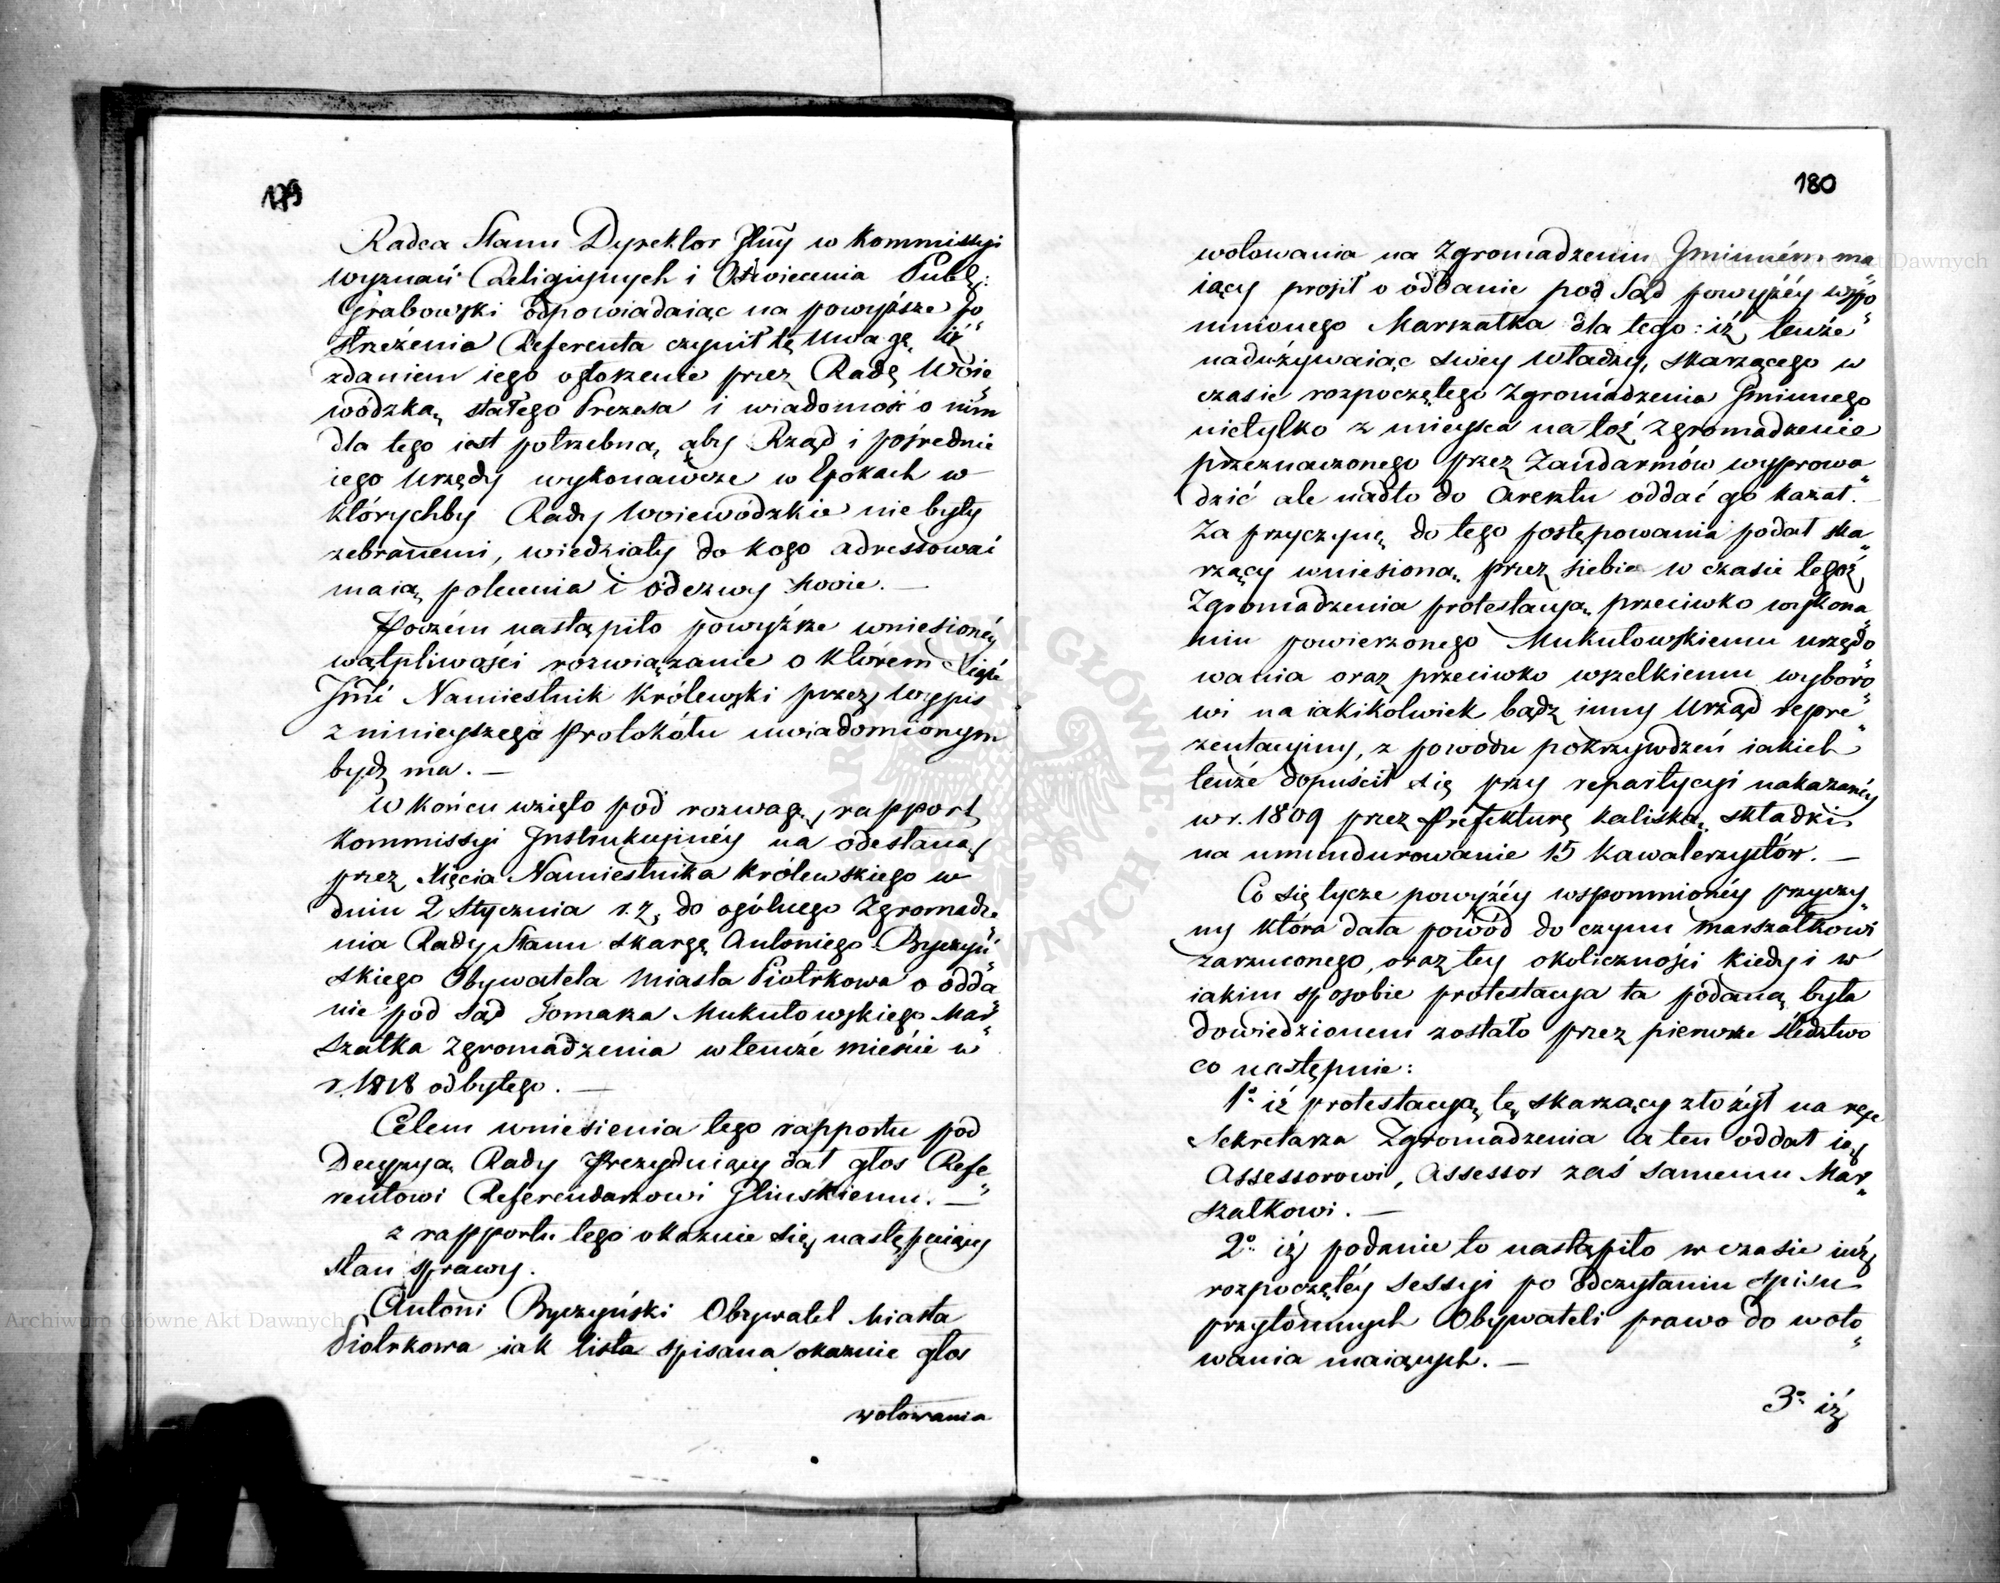 179
Radca Stanu Dyrektor Jlny w Kommissyi
wyznań Religiynych i Oświecenia Publ:
Grabowski odpowiadaiąc na powyższe po„
strzeżenia Referenta czynił tę uwagę, iż
zdaniem iego ogłoszenie przez Radę Woie„
wódzką, stałego Prezesa i wiadomość o nim
dla tego iest potrzebną, aby Rząd i pośrednie
iego Urzędy wykonawcze w Epokach w
którychby Rady Woiewódzkie nie były
zebranemi, wiedziały do kogo adressować
maią polecenia i odezwy swoie. —
Poczém nastąpiło powyższe wniesionéy
wątpliwości rozwiązanie o którem Xiąże
Jmć Namiestnik Królewski przez wypis
z ninieyszego Protokółu uwiadomionym
bydź ma. —
W końcu wzięto pod rozwagę, rapport
Kommissyi Instrukcyinéy na odesłaną
przez Xięcia Namiestnika Królewskiego w
dniu 2 Stycznia r. z. do ogólnego Zgromadze
nia Rady Stanu skargę Antoniego Byczyń„
skiego Obywatela Miasta Piotrkowa o odda„
nie pod Sąd Tomasza Mukułowskiego Mar„
szałka Zgromadzenia w temże mieście w
r. 1818 odbytego. —
Celem wniesienia tego rapportu pod
Decyzyą Rady Prezyduiący dał głos Refe„
rentowi Referendarzowi Glińskiemu. —
z rapportu tego okazuie się, następuiący
stan sprawy.
Antoni Byczyński Obywatel Miasta
Piotrkowa iak lista spisana okazuie głos
wotowania
180
wotowania na Zgromadzeniu Gminném ma„
iący prosił o oddanie pod Sąd powyżéy wspo„
mnionego Marszałka dla tego: iż tenże
nadużywaiąc swey Władzy, skarzącego w
czasie rozpoczętego Zgromadzenia Gminnego
nietylko z mieysca na toż, zgromadzenie
przeznaczonego przez Żandarmów wyprowa„
dzić ale nadto do Aresztu oddać go kazał. —
Za przyczynę do tego postępowania podał ska„
rzący wniesioną przez siebie w czasie tegoż,
Zgromadzenia protestacyą, przeciwko wykona„
niu powierzonego Mukułowskiemu urzędo„
wania oraz przeciwko wszelkiemu wyboro„
wi na iakikolwiek bądź inny Urząd repre„
zentacyiny, z powodu pokrzywdzeń iakich
tenże dopuścił się przy repartycyi nakazanéy
w r. 1809 przez Prefekturę Kaliską, składki
na umundurowanie 15 kawalerzystów. —
Co się tycze powyżéy wspomnionéy przyczy„
ny która dała powód do czynu marszałkowi
zarzuconego, oraz tey okoliczności kiedy i w
iakim sposobie protestacya ta podaną była
dowiedzionem zostało przez pierwsze śledztwo
co następnie:
1o iż protestacyą tę skarzący złożył na ręce
Sekretarza Zgromadzenia a ten oddał ią
Assessorowi, Assessor zaś samemu Mar„
szałkowi. —
2o iż podanie to nastąpiło w czasie iuż,
rozpoczętéy Sessyi po odczytaniu spisu
przytomnych Obywateli prawo do woto„
wania maiących. —
3o iż